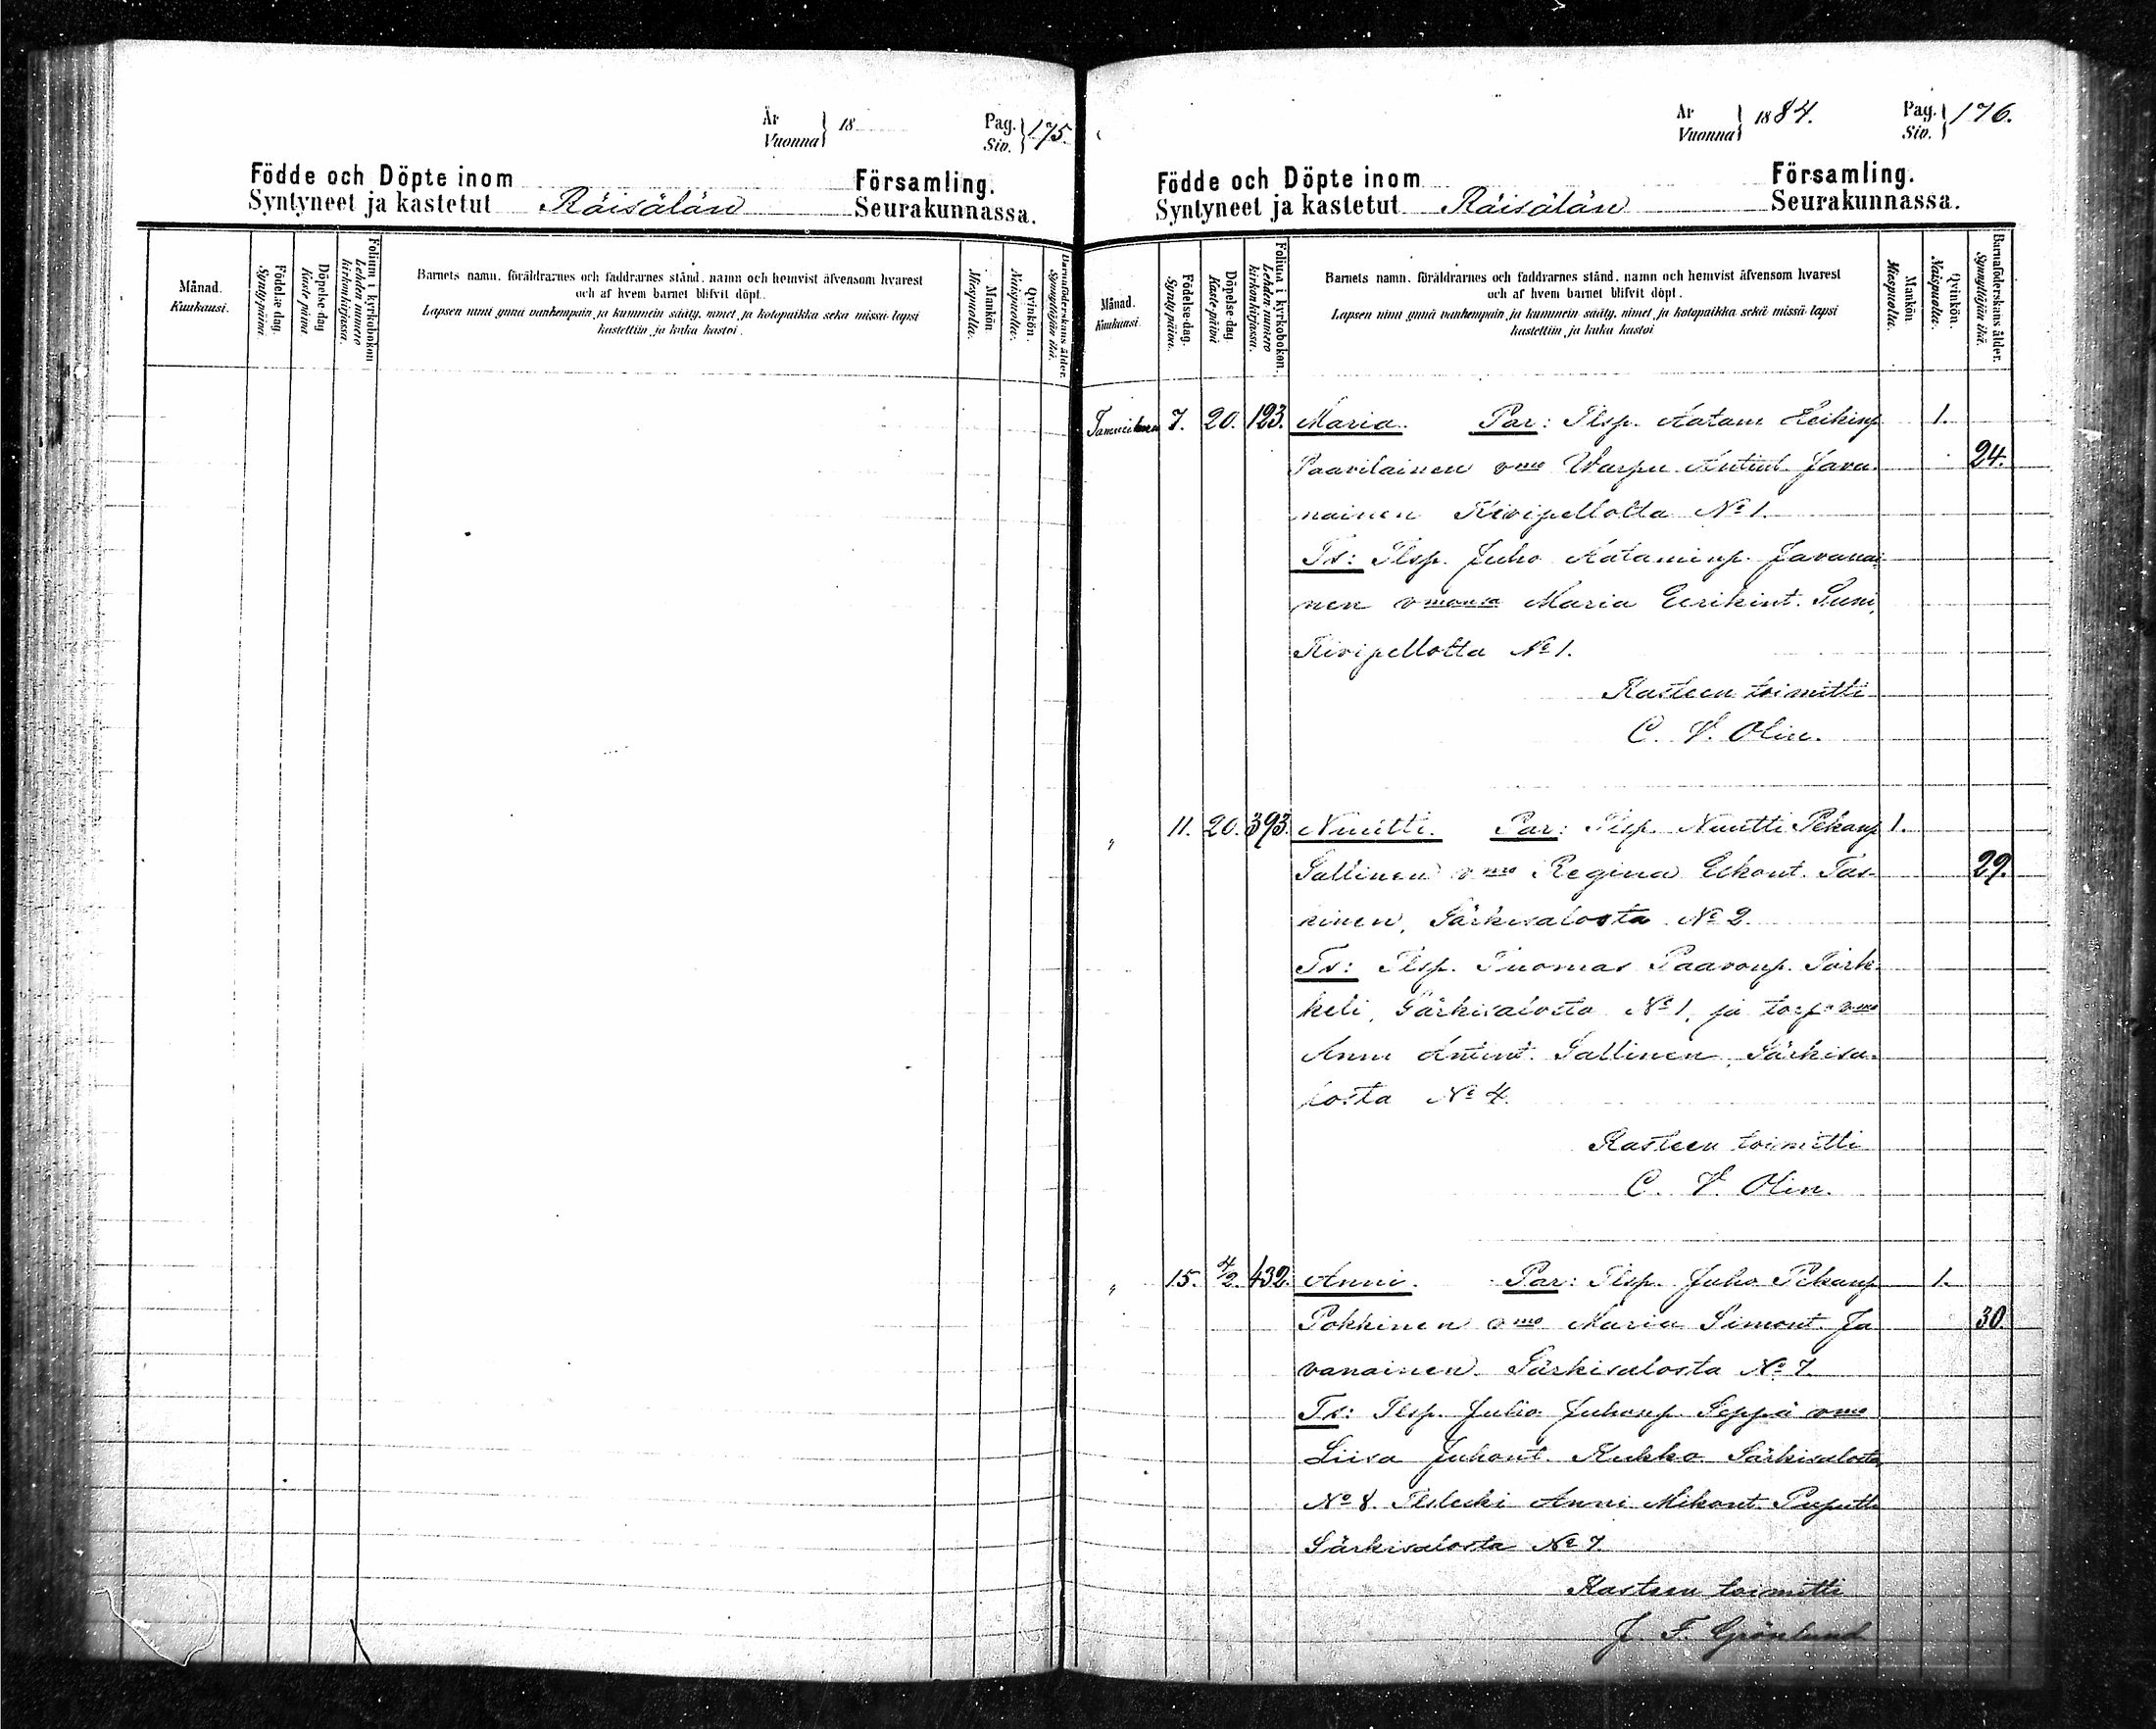 År
Vuonna } 18
Pag.
Siv. } 175.
Födde och Döpte inom Församling.
Syntyneet ja kastetut Räisälän Seurakunnassa.
Månad.
Kuukausi.
Födelse-dag.
Synty-päivä.
Döpelse-dag
Kaste-päivä
Folium i kyrkobokon
Lehden numero
kirkonkirjassa.
Barnets namn, föräldrarnes och faddrarnes stånd, namn och hemvist äfvensom hvarest
och af hvem barnet blifvit döpt.
Lapsen nimi ynnä vanhempain ja kummein sääty, nimet ja kotopaikka sekä missä lapsi
kastettiin ja kuka kastoi.
Mankön.
Miespuolia.
Qvinkön.
Naispuolia.
Barnaföderskans ålder.
Synnyttäjän ikä.
År
Vuonna } 1884.
Pag.
Siv. } 176.
Födde och Döpte inom Församling.
Syntyneet ja kastetut Räisälän Seurakunnassa.
Månad.
Kuukausi.
Födelse-dag.
Synty-päivä.
Döpelse-dag.
Kaste-päivä
Folium i kyrkobokon.
Lehden numero
kirkonkirjassa.
Barnets namn, föräldrarnes och faddrarnes stånd, namn och hemvist äfvensom hvarest
och af hvem barnet blifvit döpt.
Lapsen nimi ynnä vanhempain ja kummein sääty, nimet ja kotopaikka sekä missä lapsi
kastettiin ja kuka kastoi
Mankön
Miespuolia.
Qvinkön.
Naispuolia.
Barnaföderskans ålder.
Synnyttäjän ikä.
Tammikuu 7. 20. 123. Maria. Par: Tlsp. Aatam Heikinp 1.
Paavilainen vmo Warpu Antint. Java- 24.
nainen Kivipellolta No 1.
Ts: Tlsp. Juho Aataminp. Javanai-
nen vmonsa Maria Eerikint. Suni,
Kivipellolta No 1.
Kasteen toimitti
C. V. Olin.
" 11. 20. 393. Nuutti. Par: Tlsp. Nuutti Pekanp 1.
Sallinen vmo Regina Eskont. Tas- 29.
kinen, Särkisalosta No 2.
Ts: Tlsp. Tuomas Paavonp.
keli, Särkisalosta No 1, ja torp. vmo
Anni Antint. Sallinen, Särkisa-
losta No 4.
Kasteen toimitti
C. V. Olin.
" 15. 4/2. 432. Anni. Par: Tlsp. Juho Pekanp 1.
Pokkinen vmo Maria Simont. Ja 30.
vanainen Särkisalosta No 7.
Ts: Tlsp. Juho Juhonp. Seppä vmo
Liisa Juhont. Kukko Särkisalosta
No 8. Tlsleski Anni Mikont. Puputti
Särkisalosta No 7.
Kasteen toimitti
J. F. Grönlund